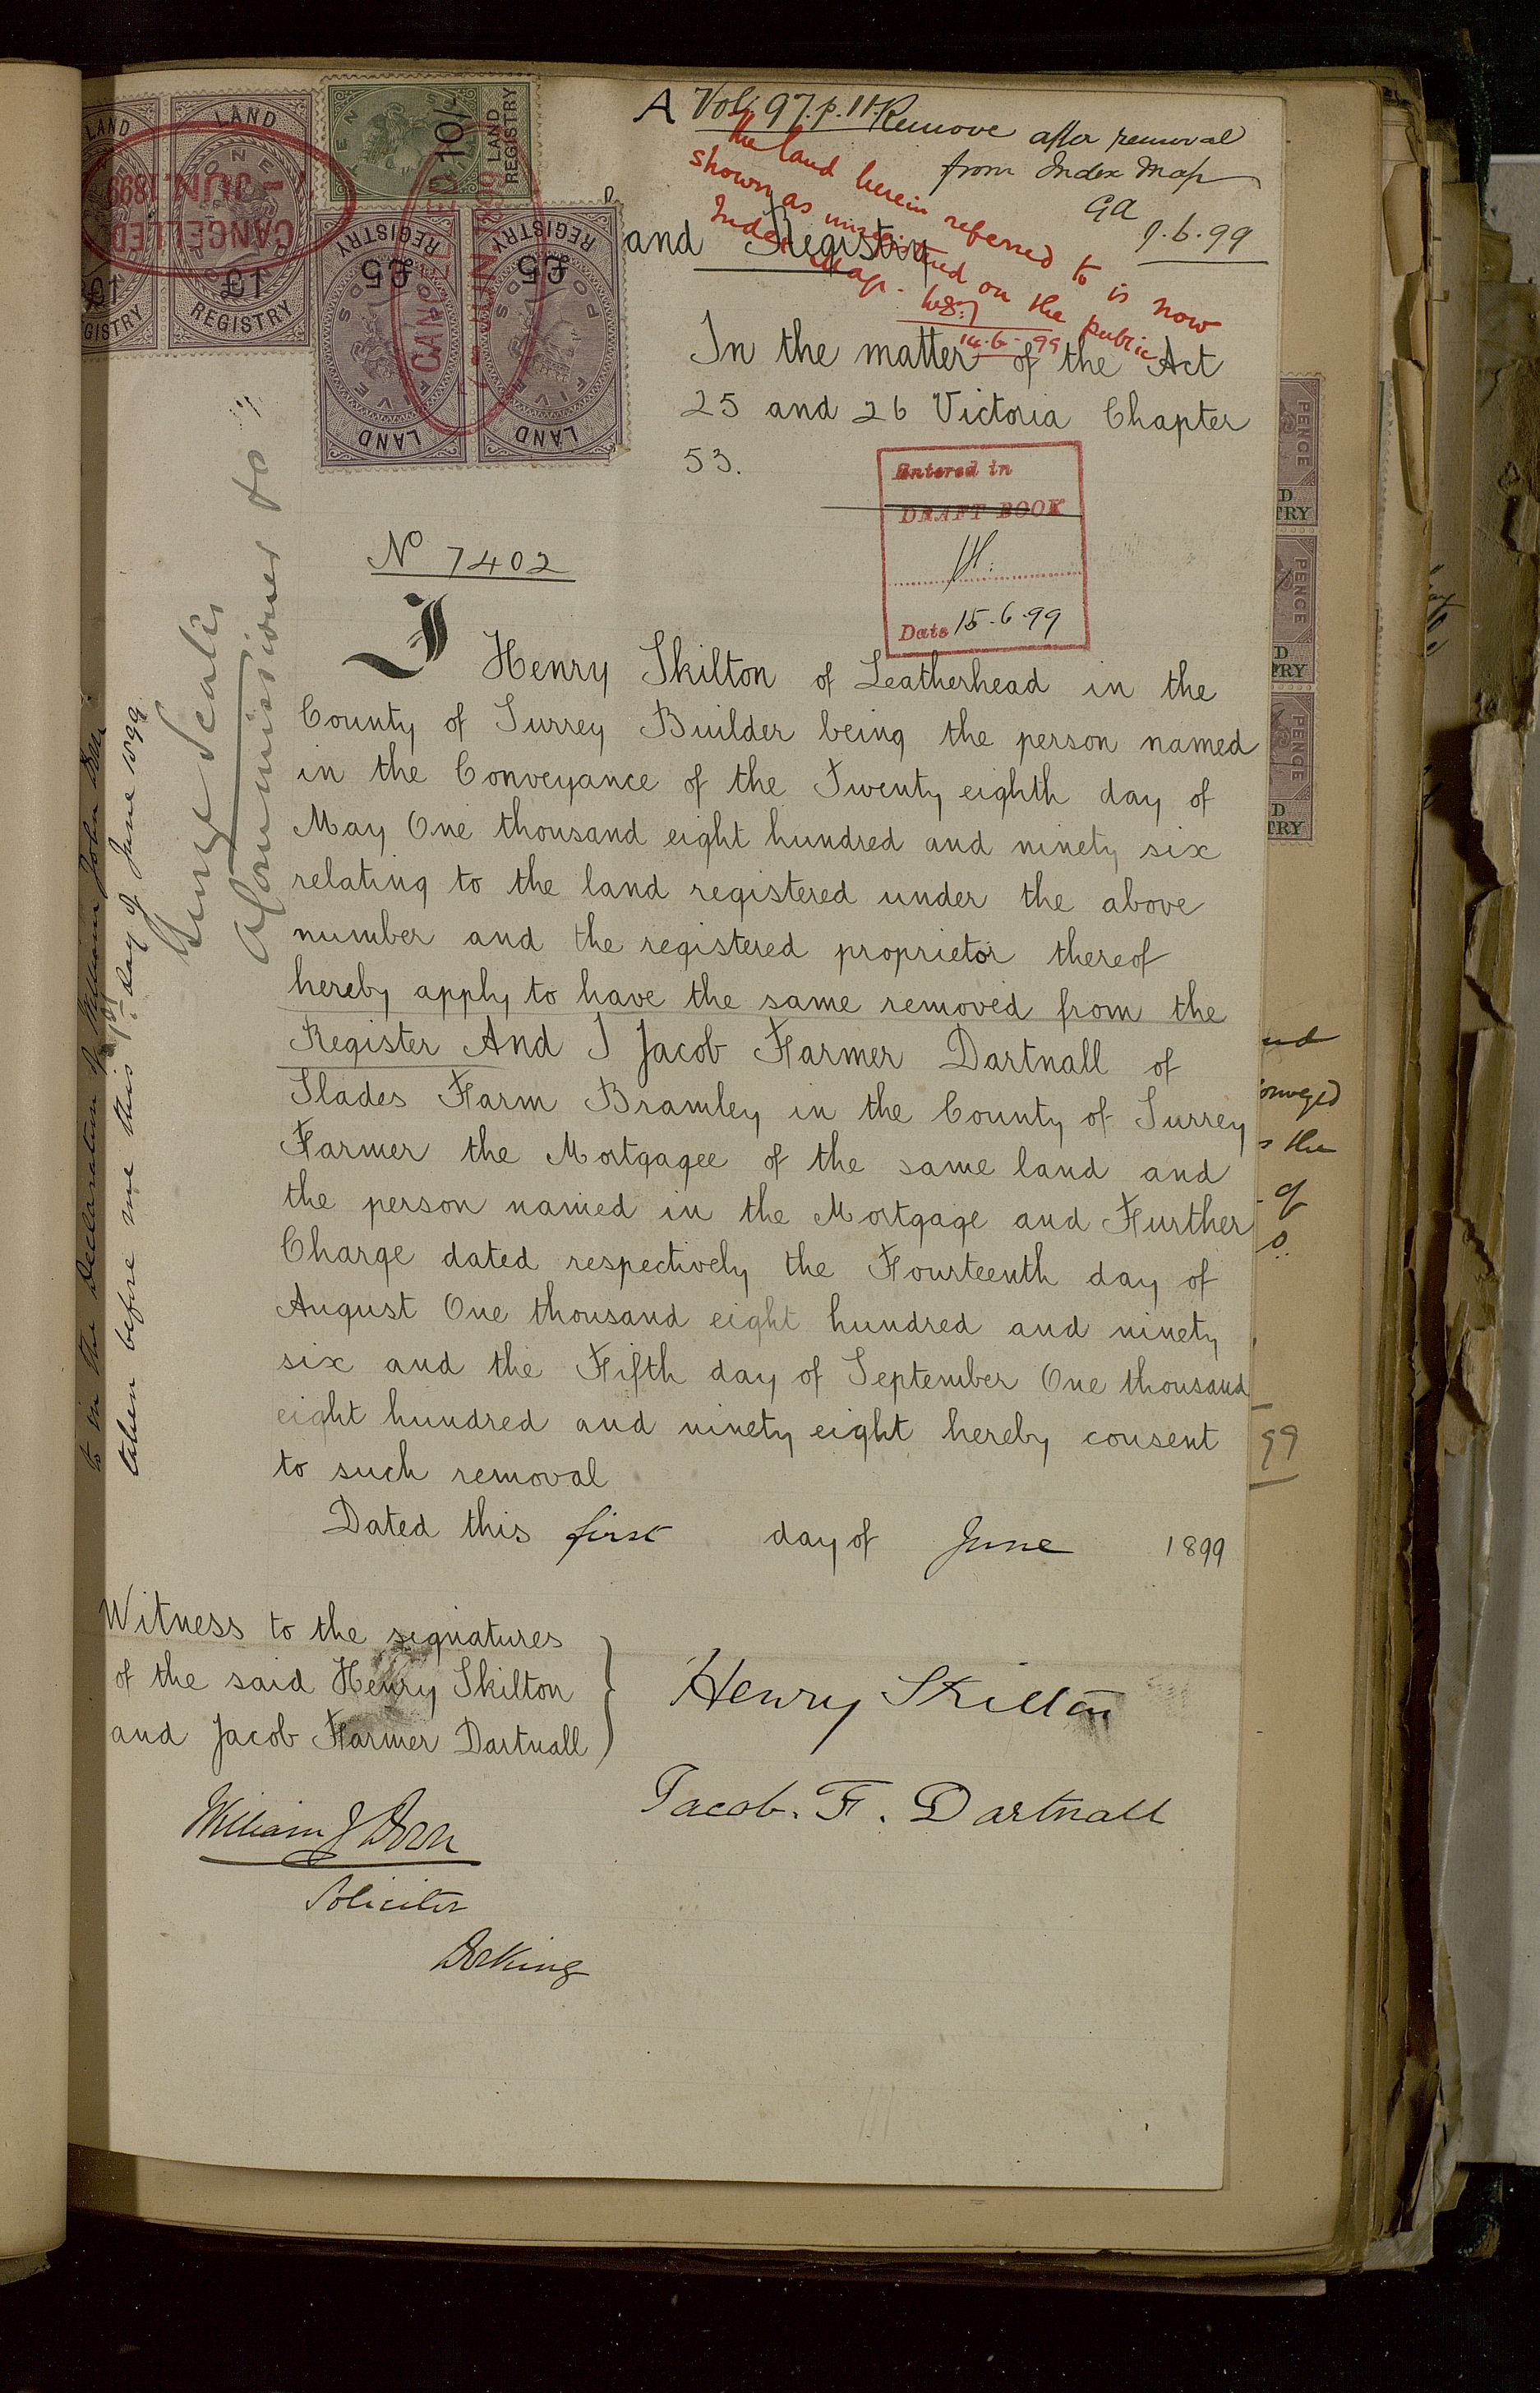 A Vol. 97. p. 114
Remove after removal
from Index Map
GA
9.6.99
the land herein referred to is now
shown as unregistered on the public
Index Map.
14.6.99
LAND
REGISTRY
£1
LAND
ONE
REGISTRY
£1
CANCELLED
1-JUN.1899
TEN
10/-
LAND
REGISTRY
LAND
FIVE
REGISTRY
£5
LAND
FIVE
REGISTRY
£5
CANCELLED
JUN 1899
and Registry
In the matter of the Act
25 and 26 Victoria Chapter
53.
Entered in
DRAFT BOOK
H.
Date 15.6.99
No 7402
I Henry Skilton of Leatherhead in the
County of Surrey Builder being the person named
in the Conveyance of the Twenty eighth day of
May One thousand eight hundred and ninety six
relating to the land registered under the above
number and the registered proprietor thereof
hereby apply to have the same removed from the
Register And I Jacob Farmer Dartnall of
Slades Farm Bramley in the County of Surrey
Farmer the Mortgagee of the same land and
the person named in the Mortgage and Further
Charge dated respectively the Fourteenth day of
August One thousand eight hundred and ninety
six and the Fifth day of September One thousand
eight hundred and ninety eight hereby consent
to such removal
Dated this first day of June 1899
Witness to the signatures
of the said Henry Skilton
and Jacob Farmer Dartnall
Henry Skilton
Jacob. F. Dartnall
William J Down
Solicitor
Dorking
to in the Declaration of William John
taken before me this 1st day of June 1899
A Commissioner to
PENCE
PENCE
PENCE
onveyed
the
of
99